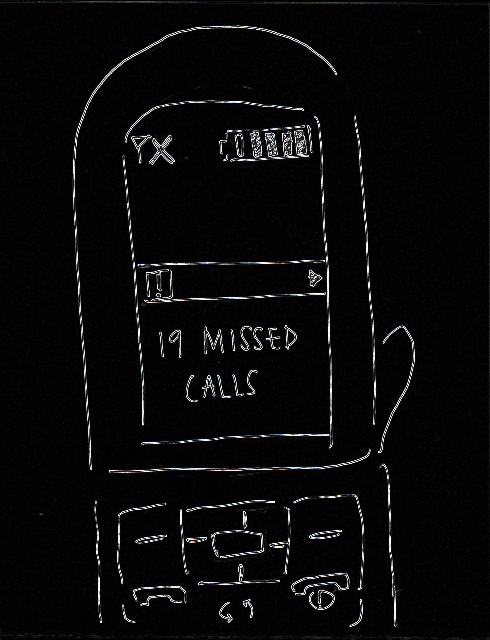 19 MISSED
CALLS